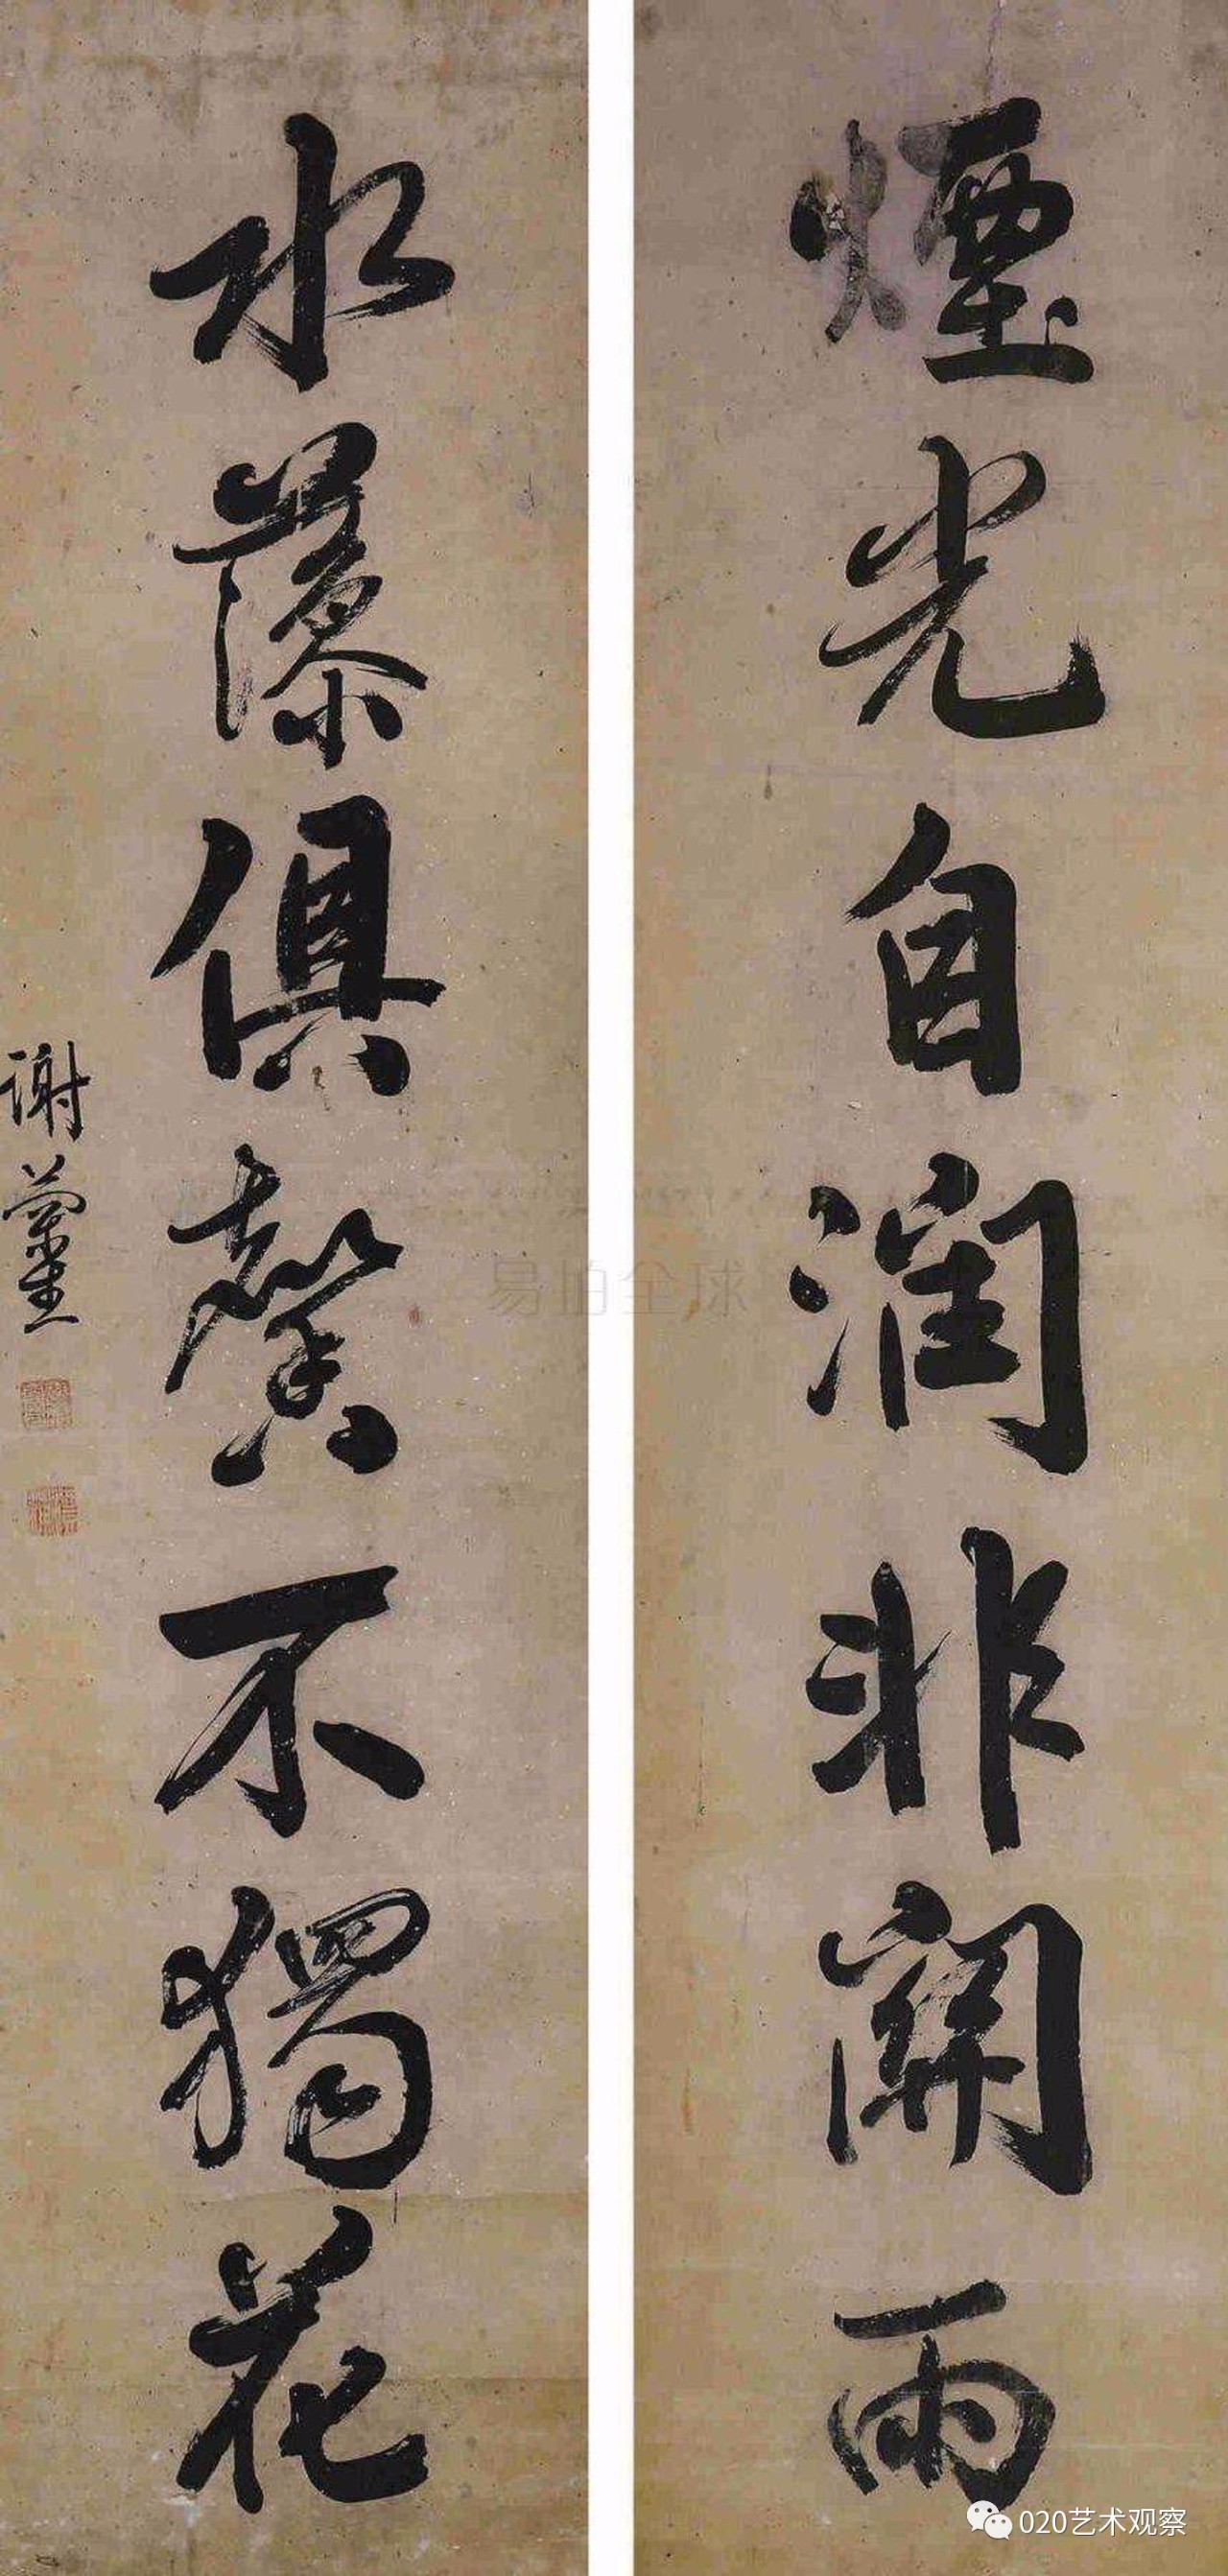 煙光自润非關雨
水藻俱馨不獨花
谢蘭生
易拍全球
020艺术观察